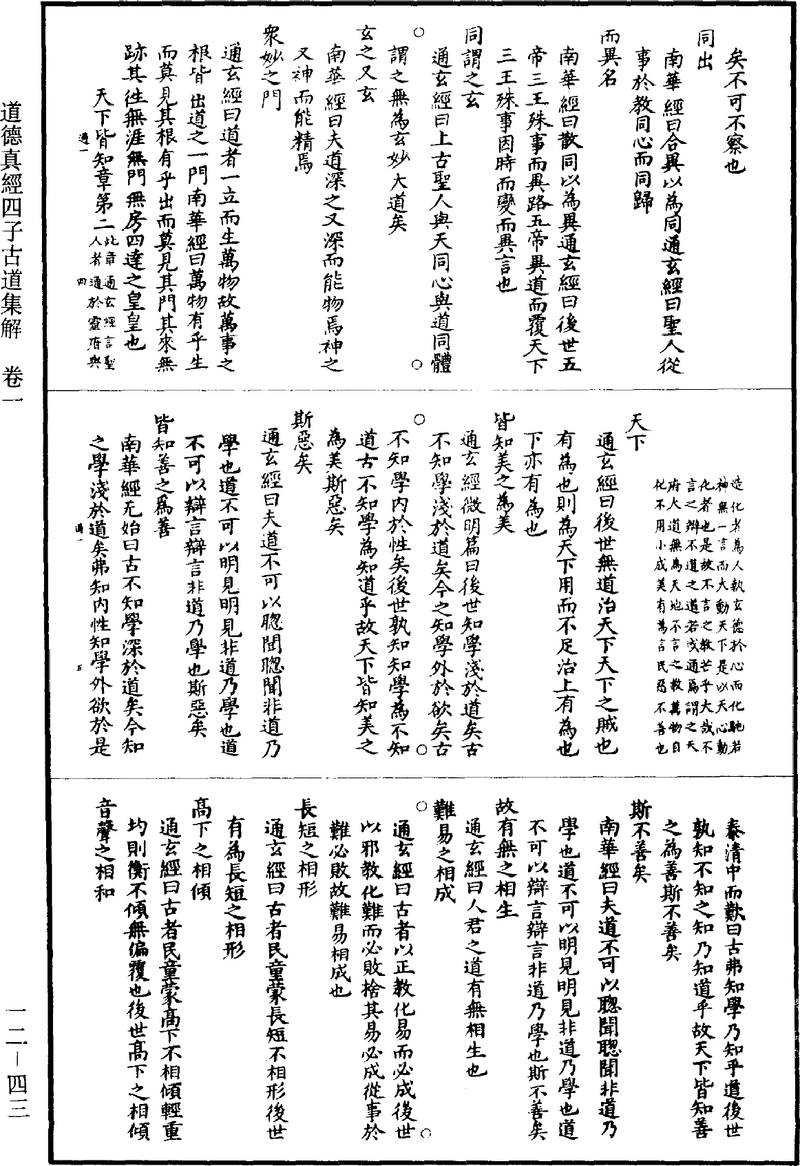 道德真經四子古道集解　卷一
一二－四三
矣不可不察也
同出
南華經曰合異以為同通玄經曰聖人從
事於教同心而同歸
而異名
南華經曰散同以為異通玄經曰後世五
帝三王殊事而異路五帝異道而覆天下
三王殊事因時而變而異言也
同謂之玄
通玄經曰上古聖人與天同心與道同體
謂之無為玄妙大道矣
玄之又玄
南華經曰夫道深之又深而能物焉神之
又神而能精焉
眾妙之門
通玄經曰道者一立而生萬物故萬事之
根皆出道之一門南華經曰萬物有乎生
而莫見其根有乎出而莫見其門其來無
跡其徃無涯無門無房四達之皇皇也
天下皆知章第二
此章通玄經言聖
人者通於靈府與
過一
四
造化者為人執玄德於心而化馳若
神無一言而大動天下是以天心動
化者也是故不言之教芒乎大哉不
言之辯不道之道若或通焉謂之天
府大道無為天地不言之教萬物自
化不用小成美有為言民惡不善也
天下
通玄經曰後世無道治天下天下之賊也
有為也則為天下用而不足治上有為也
下亦有為也
皆知美之為美
通玄經微明篇曰後世知學淺於道矣古
不知學淺於道矣今之知學外於欲矣古
不知學內於性矣後世孰知知學為不知
道古不知學為知道乎故天下皆知美之
為美斯惡矣
斯惡矣
通玄經曰夫道不可以聰聞聰聞非道乃
學也道不可以明見明見非道乃學也道
不可以辯言辯言非道乃學也斯惡矣
皆知善之為善
南華經无始曰古不知學深於道矣今知
之學淺於道矣弗知內性知學外欲於是
過一
五
泰清中而歎曰古弗知學乃知乎道後世
孰知不知之知乃知道乎故天下皆知善
之為善斯不善矣
斯不善矣
南華經曰夫道不可以聰聞聰聞非道乃
學也道不可以明見明見非道乃學也道
不可以辯言辯言非道乃學也斯不善矣
故有無之相生
通玄經曰人君之道有無相生也
難易之相成
通玄經曰古者以正教化易而必成後世
以邪教化難而必敗捨其易必成從事於
難必敗故難易相成也
長短之相形
通玄經曰古者民童蒙長短不相形後世
有為長短之相形
高下之相傾
通玄經曰古者民童蒙高下不相傾輕重
均則衡不傾無偏覆也後世高下之相傾
音聲之相和